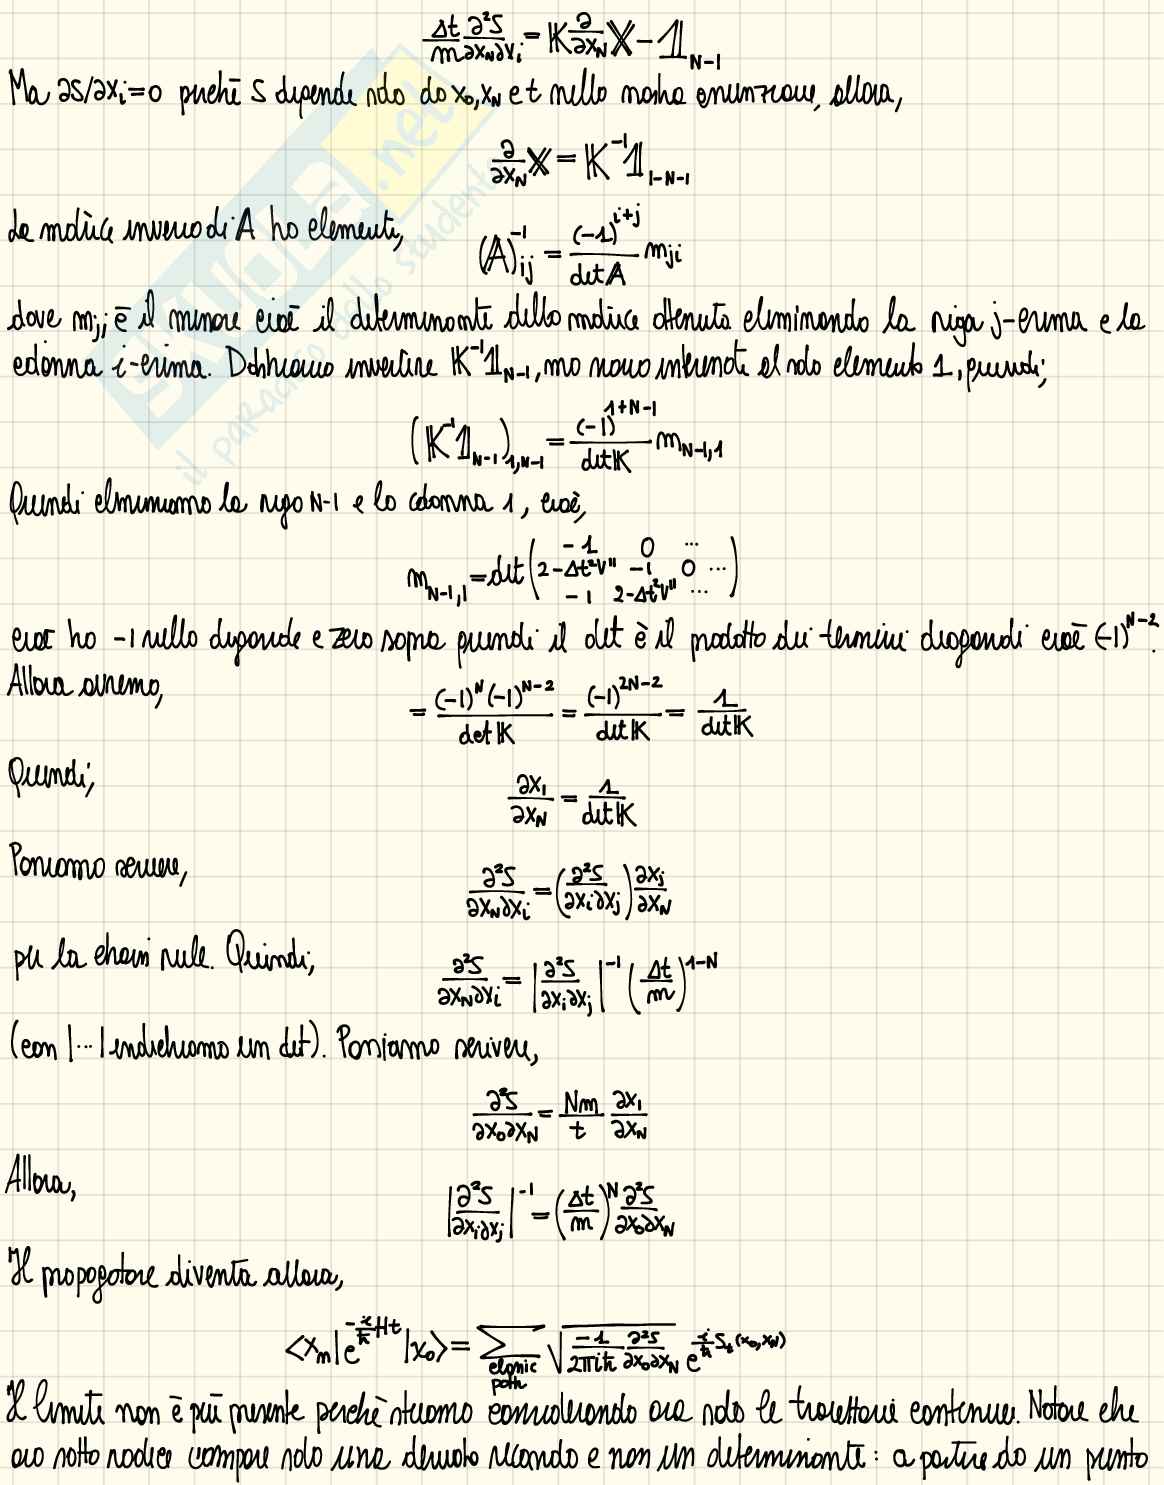 Δt/m ∂²S/∂x_N∂x_i = 𝕂 ∂/∂x_N 𝕏 − 𝟙_{N-1}
Ma ∂S/∂x_i=0 perché S dipende solo da x₀, x_N e t nella nostra approssimazione, allora,
∂/∂x_N 𝕏 = 𝕂⁻¹𝟙_{1-N-1}
La matrice inversa di 𝔸 ha elementi,
(𝔸)⁻¹_{ij} = (-1)^{i+j}/det𝔸 m_{ji}
dove m_{ji} è il minore cioè il determinante della matrice ottenuta eliminando la riga j-esima e la
colonna i-esima. Dobbiamo invertire 𝕂⁻¹𝟙_{N-1}, ma siamo interessati al solo elemento 1, quindi,
(𝕂⁻¹𝟙_{N-1})_{1,N-1} = (-1)^{1+N-1}/det𝕂 m_{N-1,1}
Quindi eliminiamo la riga N-1 e la colonna 1, cioè,
m_{N-1,1} = det( -1 0 ...
2-Δt²V'' -1 0 ...
-1 2-Δt²V'' ... )
cioè ho -1 sulla diagonale e zero sopra quindi il det è il prodotto dei termini diagonali cioè (-1)^{N-2}.
Allora avremo,
= (-1)^N(-1)^{N-2}/det𝕂 = (-1)^{2N-2}/det𝕂 = 1/det𝕂
Quindi,
∂x₁/∂x_N = 1/det𝕂
Possiamo scrivere,
∂²S/∂x_N∂x_i = (∂²S/∂x_i∂x_j) ∂x_j/∂x_N
per la chain rule. Quindi,
∂²S/∂x_N∂x_i = |∂²S/∂x_i∂x_j|⁻¹ (Δt/m)^{1-N}
(con |...| indichiamo un det). Possiamo scrivere,
∂²S/∂x₀∂x_N = Nm/t ∂x₁/∂x_N
Allora,
|∂²S/∂x_i∂x_j|⁻¹ = (Δt/m)^N ∂²S/∂x₀∂x_N
Il propagatore diventa allora,
<x_m|e^{-i/ħ Ht}|x₀> = Σ_{classic path} √(-1/2πiħ ∂²S/∂x₀∂x_N) e^{i/ħ S_t(x₀,x_N)}
Il limite non è più presente perché stiamo considerando ora solo le traiettorie continue. Notare che
ora sotto radice compare solo una derivata seconda e non un determinante: a partire da un punto
SKUOLA.net
il paradiso dello studente